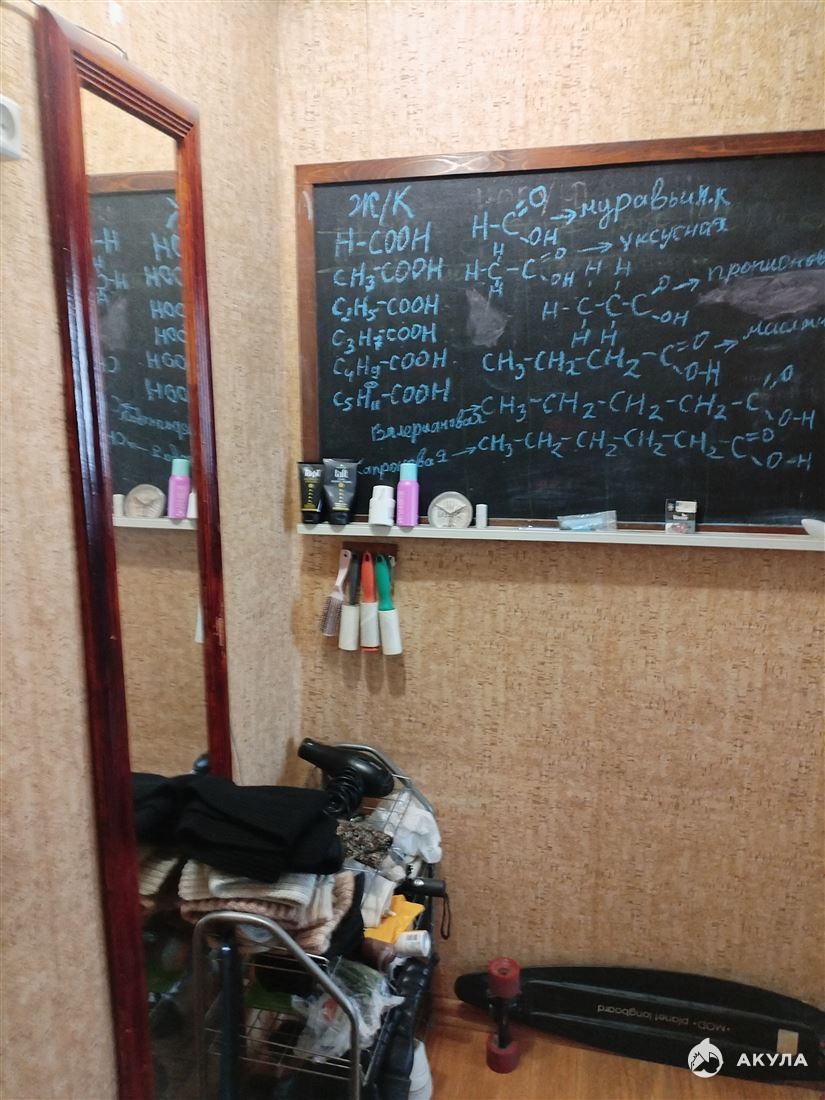 Ж/К
H-COOH
CH₃-COOH
C₂H₅-COOH
C₃H₇-COOH
C₄H₉-COOH
C₅H₁₁-COOH
H-C=O
OH
→муравьин.к
H
H-C-C=O
OH
→уксусная
H
H H
H-C-C-C
O
OH
H H
→пропионов
CH₃-CH₂-CH₂-C=O
O-H
→маслян
Валериановая
CH₃-CH₂-CH₂-CH₂-C
O
O-H
Капроновая→
CH₃-CH₂-CH₂-CH₂-CH₂-C=O
O-H
taft
taft
•MOD• planet longboard
АКУЛА